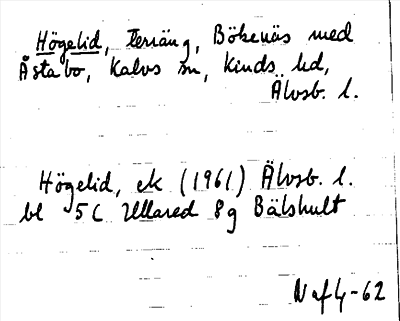 Högelid, Terräng, Bökenäs med
Åstabo, Kalvs sn, Kinds hd,
Älvsb. l.
Högelid, ek (1961) Älvsb. l.
bl 5C Ullared 8g Bälshult
Naf4-62